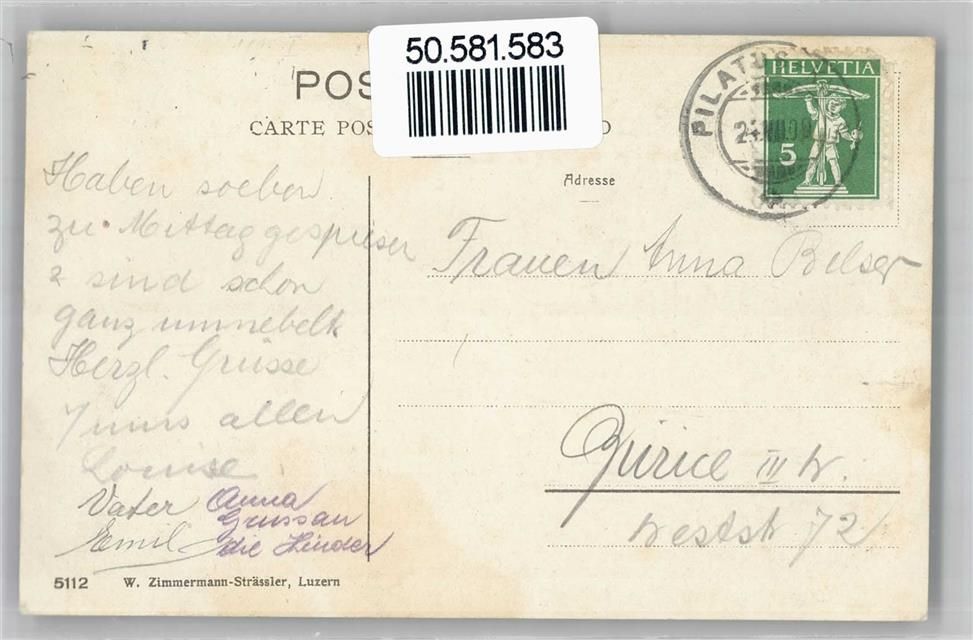 50.581.583
POS
CARTE POS
D
PILATUS
HELVETIA
5
Adresse
Haben soeben
zu Mittag gespiesen
& sind schon
ganz umnebelt
Herzl. Grüsse
uns allen
Louise
Vater
Emil
Anna
Gruss an
die Kinder
Frauen Anna Belser
Zürich III W.
Weststr 72
5112 W. Zimmermann-Strässler, Luzern